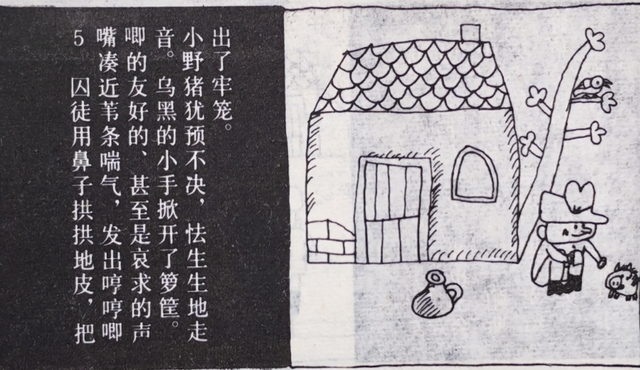 5 囚徒用鼻子拱拱地皮，把
嘴凑近苇条喘气，发出哼哼唧
唧的友好的、甚至是哀求的声
音。乌黑的小手掀开了箩筐。
小野猪犹预不决，怯生生地走
出了牢笼。